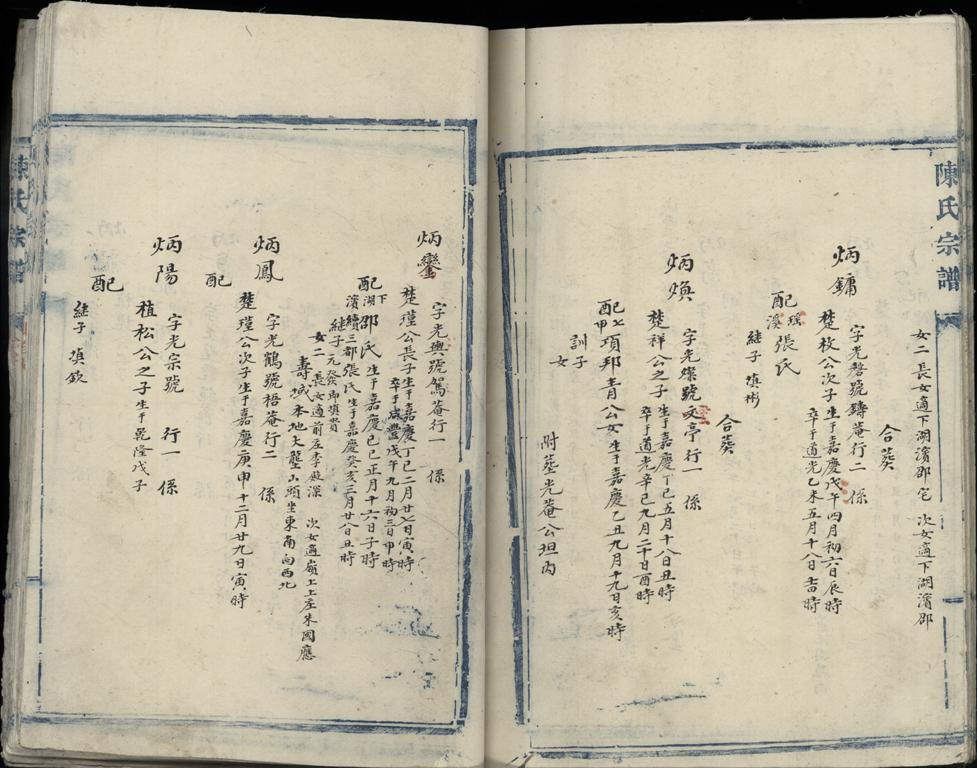 陳氏宗譜
女二 長女適下湖濱邵宅 次女適下湖濱邵
合葬
炳鏞 字光磬號鑄菴行二 係
楚枚公次子 生于嘉慶戊午四月初六日辰時
卒于道光乙未五月十八日吉時
配瑶溪張氏
継子 填彬
合葬
炳煥 字光燦號文亭行一 係
楚祥公之子 生于嘉慶丁巳五月十八日丑時
卒于道光辛巳九月二十日酉時
配七甲項邦青公女 生于嘉慶乙丑九月十九日亥時
訓子
女
附葬光菴公坦內
炳鑾 字光輿號鴛菴行一 係
楚瑾公長子 生于嘉慶丁巳二月廿七日寅時
卒于咸豐戊午九月初三日申時
配下湖濱邵氏 生于嘉慶己巳正月十六日子時
續三都張氏 生于嘉慶癸亥三月廿八日丑時
継子 元發即填贊
女二 長女適前庄李啟深 次女適嶺上庄朱國應
壽域本地大壟山頭坐東南向西北
炳鳳 字光鶴號梧菴行二 係
楚瑾公次子 生于嘉慶庚申十二月廿九日寅時
配
炳陽 字光宗號 行一 係
植松公之子 生于乾隆戊子
配
継子 填欽
陳氏宗譜